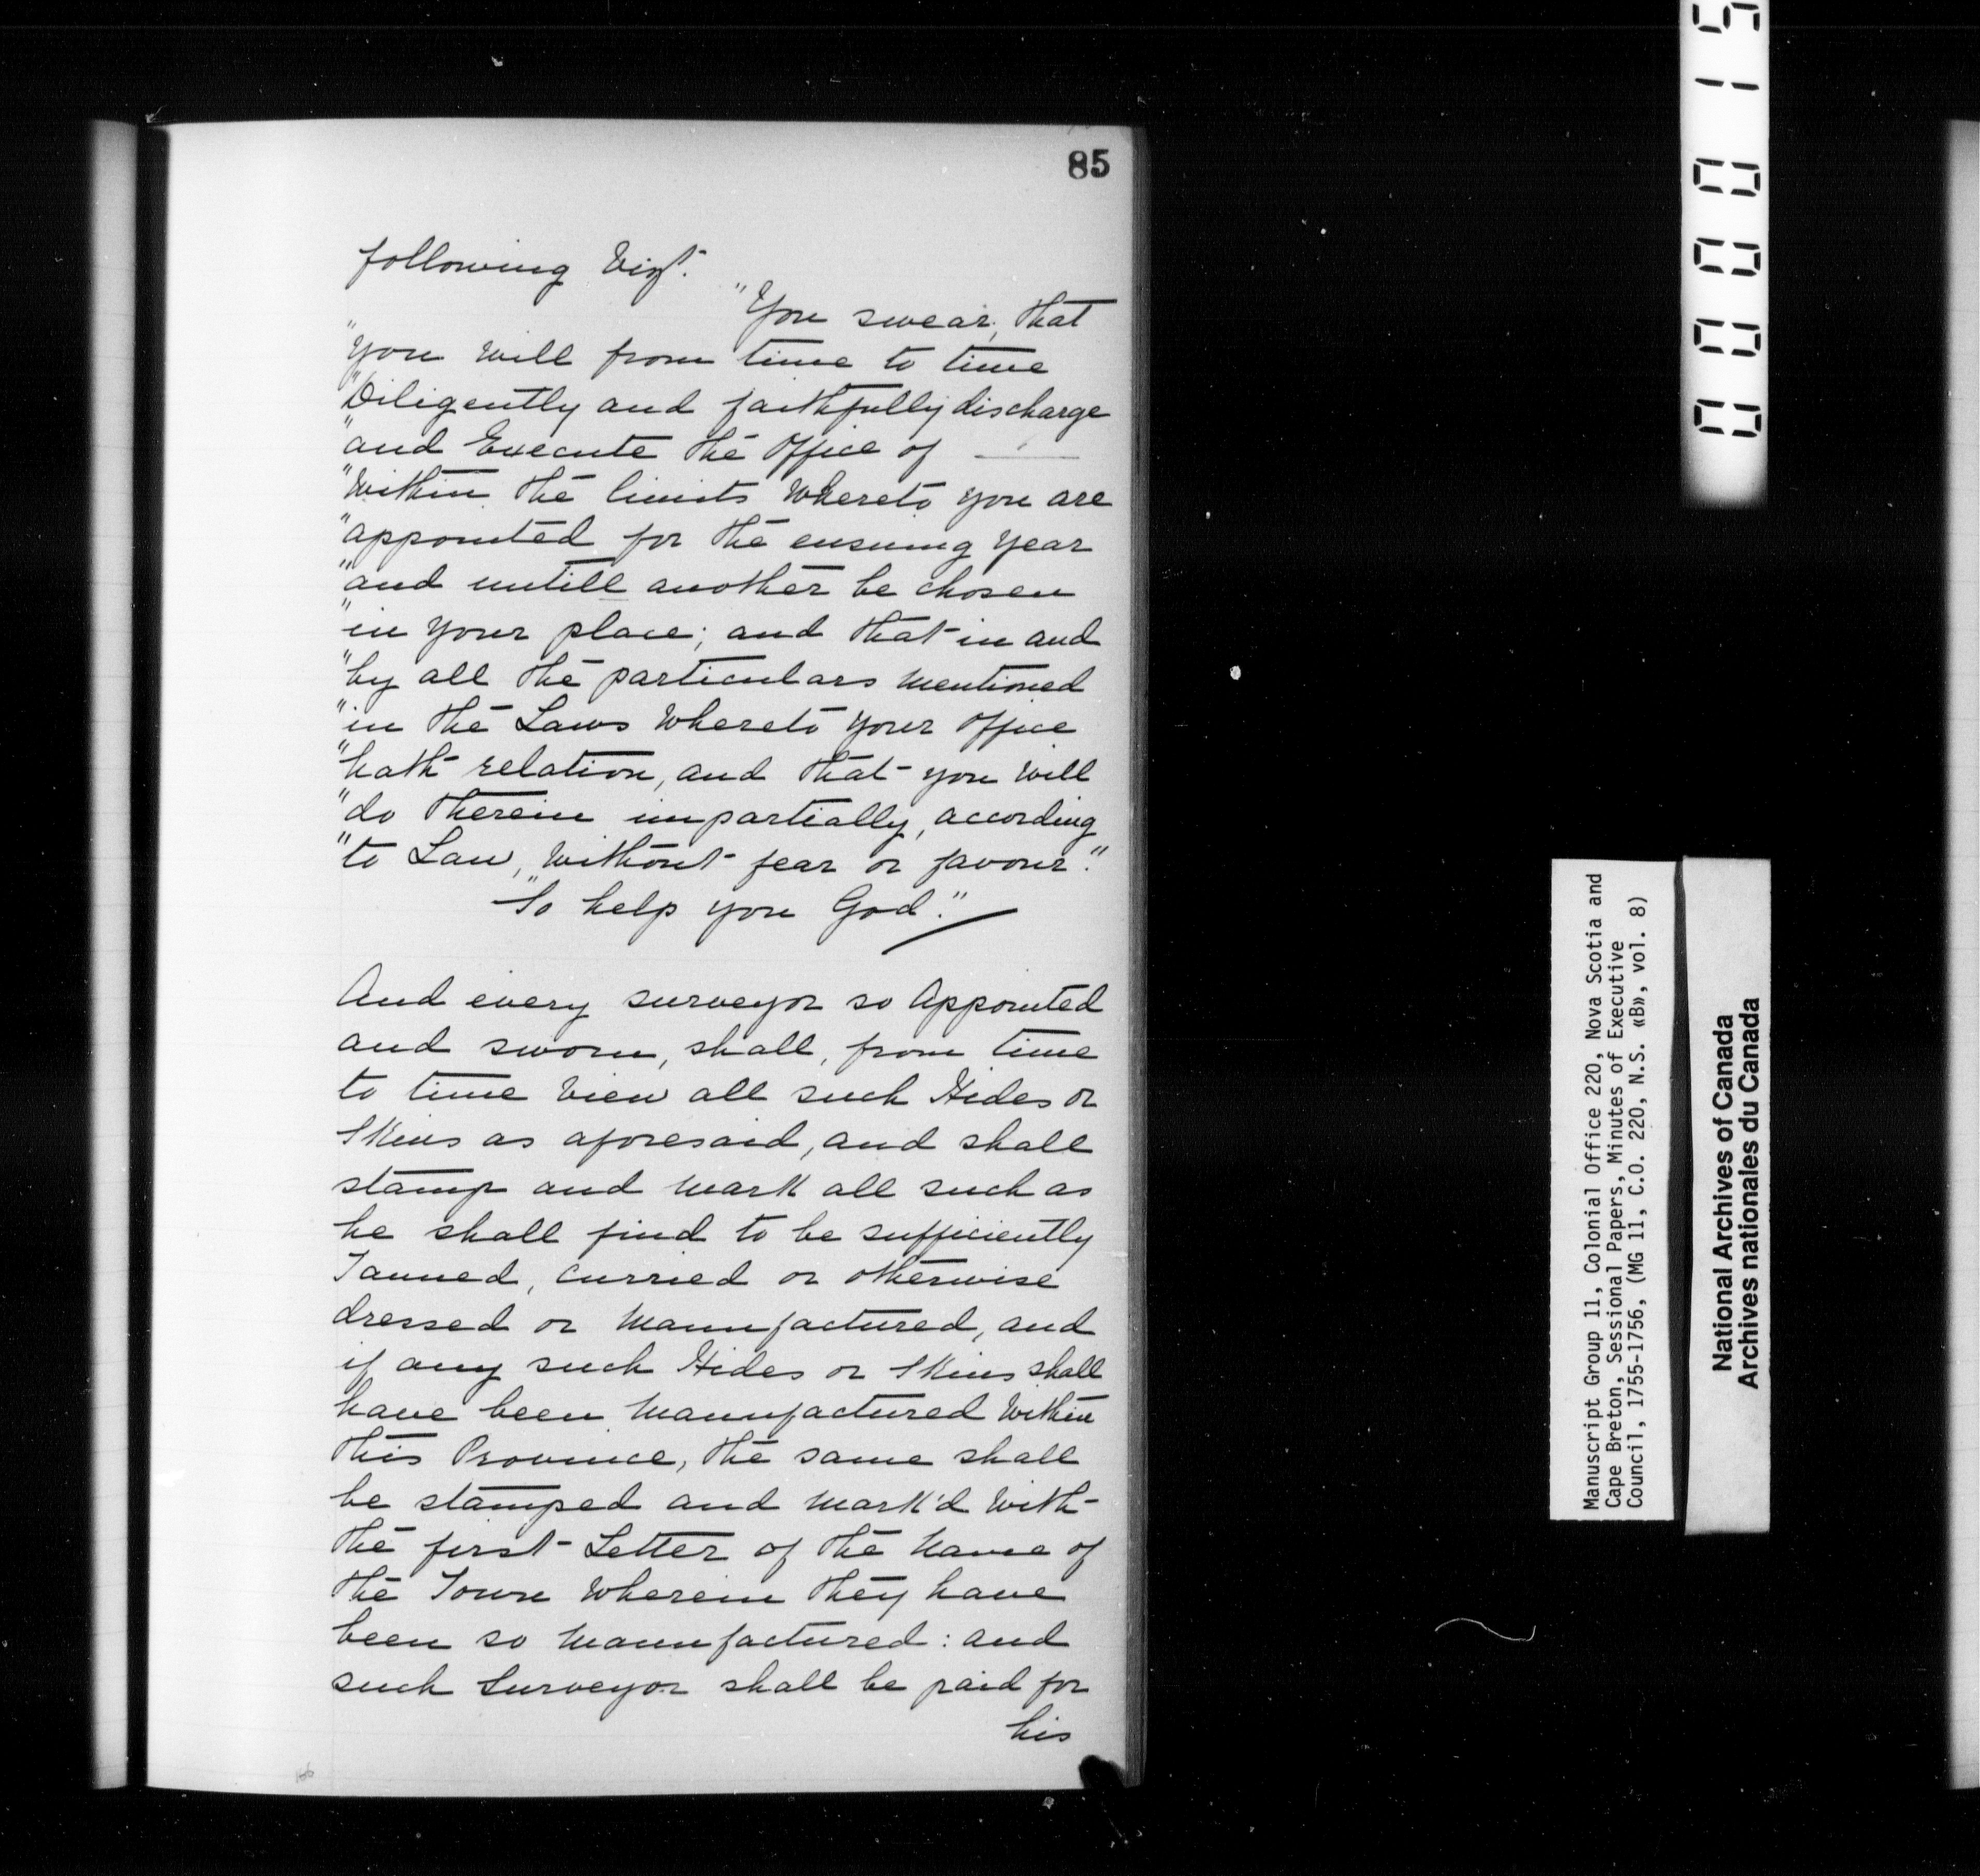 85
following Vizt.
"You swear, that
"you will from time to time
"Diligently and faithfully discharge
"and Execute the Office of ——
"Within the limits Whereto you are
"appointed for the ensuing year
"and untill another be chosen
"in your place; and that in and
"by all the particulars mentioned
"in the Laws Whereto your office
"hath relation, and that you will
"do therein impartially, according
"to Law, without fear or favour."
"So help you God."
And every surveyor so Appointed
and sworn, shall, from time
to time view all such Hides or
Skins as aforesaid, and shall
stamp and mark all such as
he shall find to be sufficiently
Tanned, Curried or otherwise
dressed or Manufactured, and
if any such Hides or Skins shall
have been Manufactured Within
this Province, the same shall
be stamped and mark'd with
the first Letter of the Name of
the Town Wherein they have
been so Manufactured: and
such Surveyor shall be paid for
his
000015
Manuscript Group 11, Colonial Office 220, Nova Scotia and
Cape Breton, Sessional Papers, Minutes of Executive
Council, 1755-1756, (MG 11, C.O. 220, N.S. «B», vol. 8)
National Archives of Canada
Archives nationales du Canada